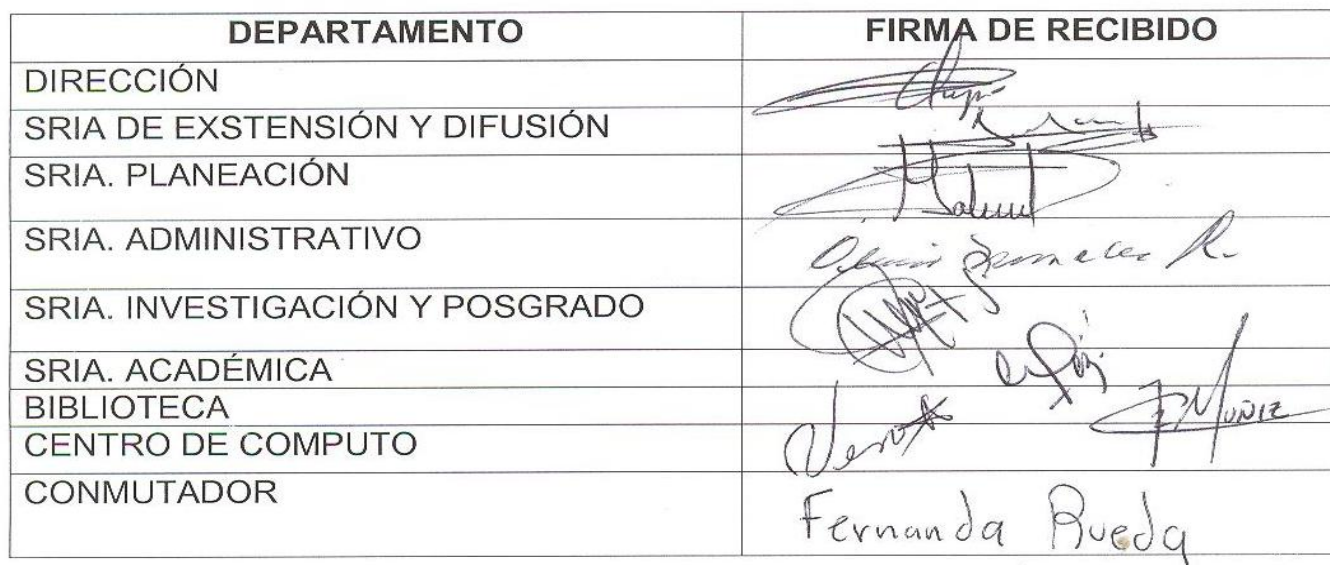 DEPARTAMENTO FIRMA DE RECIBIDO
DIRECCIÓN
SRIA DE EXSTENSIÓN Y DIFUSIÓN
SRIA. PLANEACIÓN
SRIA. ADMINISTRATIVO R.
SRIA. INVESTIGACIÓN Y POSGRADO
SRIA. ACADÉMICA
BIBLIOTECA MUÑIZ
CENTRO DE COMPUTO
CONMUTADOR Fernanda Rueda